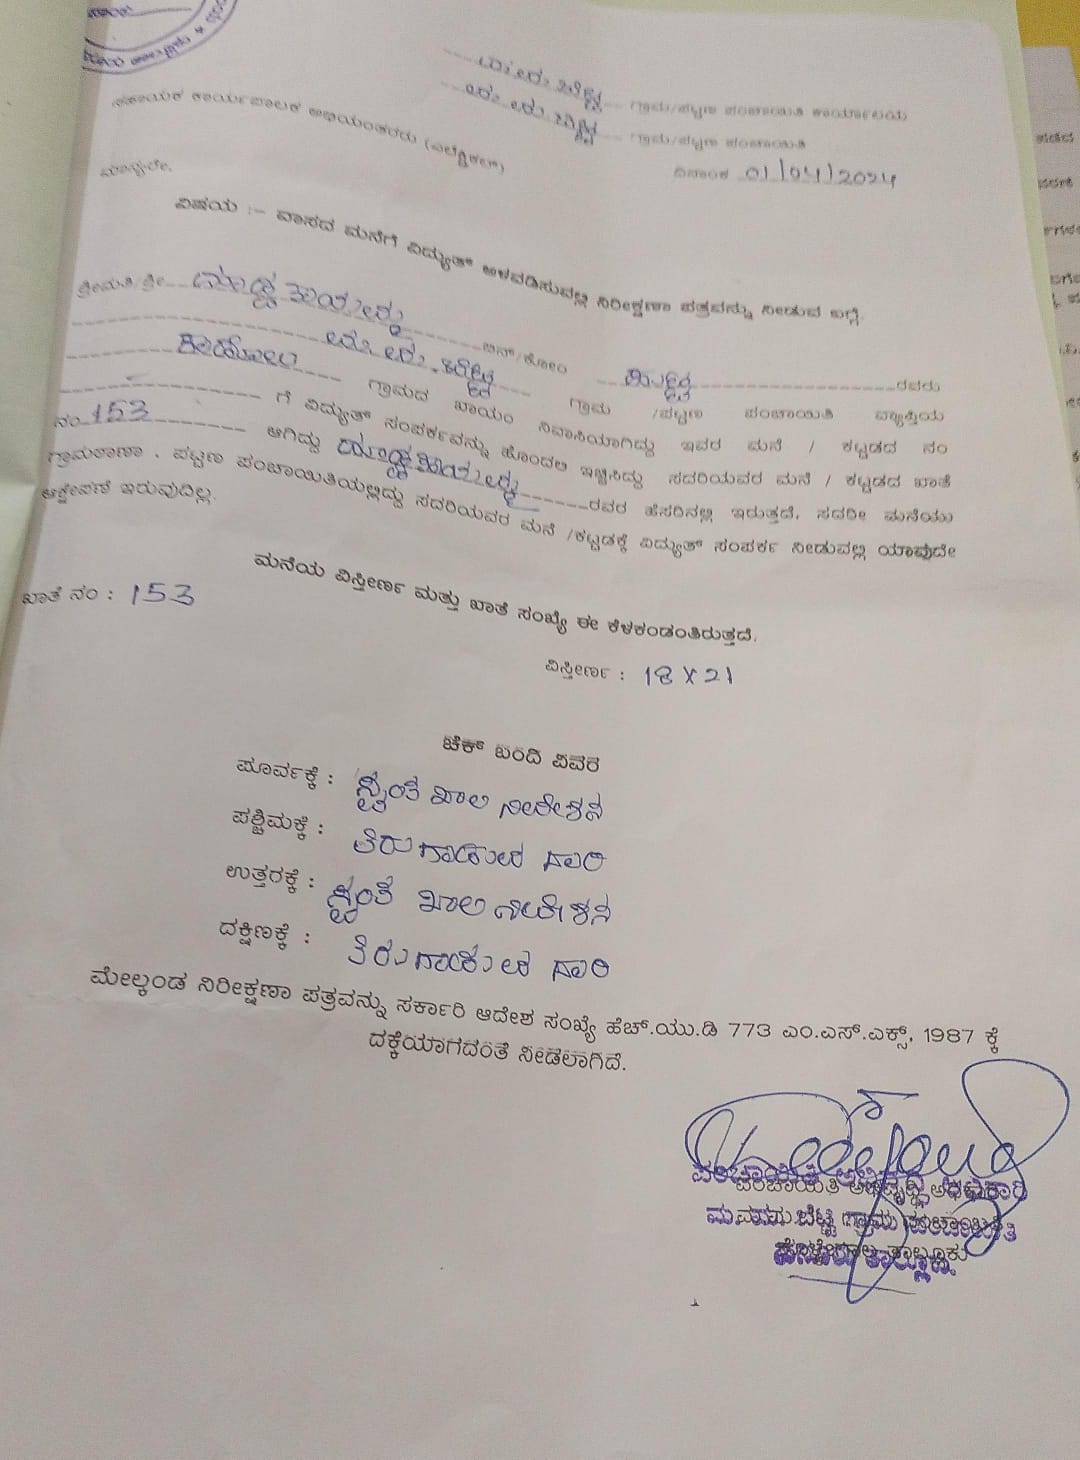 ಗ್ರಾಮ/ಪಟ್ಟಣ ಪಂಚಾಯಿತಿ ಕಾರ್ಯಾಲಯ
ಗ್ರಾಮ/ಪಟ್ಟಣ ಪಂಚಾಯಿತಿ
ದಿನಾಂಕ 01/04/2024
ಸಹಾಯಕ ಕಾರ್ಯಪಾಲಕ ಅಭಿಯಂತರರು (ಎಲೆಕ್ಟ್ರಿಕಲ್)
ಮಾನ್ಯರೇ,
ವಿಷಯ :- ವಾಸದ ಮನೆಗೆ ವಿದ್ಯುತ್ ಅಳವಡಿಸುವಲ್ಲಿ ನಿರೀಕ್ಷಣಾ ಪತ್ರವನ್ನು ನೀಡುವ ಬಗ್ಗೆ.
ಶ್ರೀಮತಿ/ಶ್ರೀ ಬಿನ್/ಕೋಂ ರವರು
ಗ್ರಾಮದ ಖಾಯಂ ಗ್ರಾಮ /ಪಟ್ಟಣ ಪಂಚಾಯಿತಿ ವ್ಯಾಪ್ತಿಯ
ನಿವಾಸಿಯಾಗಿದ್ದು ಇವರ ಮನೆ / ಕಟ್ಟಡದ ನಂ
ಗೆ ವಿದ್ಯುತ್ ಸಂಪರ್ಕವನ್ನು ಹೊಂದಲು ಇಚ್ಛಿಸಿದ್ದು ಸದರಿಯವರ ಮನೆ / ಕಟ್ಟಡದ ಖಾತೆ
ನಂ 153 ಆಗಿದ್ದು ರವರ ಹೆಸರಿನಲ್ಲಿ ಇರುತ್ತದೆ, ಸದರೀ ಮನೆಯು
ಗ್ರಾಮಠಾಣಾ , ಪಟ್ಟಣ ಪಂಚಾಯಿತಿಯಲ್ಲಿದ್ದು ಸದರಿಯವರ ಮನೆ /ಕಟ್ಟಡಕ್ಕೆ ವಿದ್ಯುತ್ ಸಂಪರ್ಕ ನೀಡುವಲ್ಲಿ ಯಾವುದೇ
ಆಕ್ಷೇಪಣೆ ಇರುವುದಿಲ್ಲ.
ಮನೆಯ ವಿಸ್ತೀರ್ಣ ಮತ್ತು ಖಾತೆ ಸಂಖ್ಯೆ ಈ ಕೆಳಕಂಡಂತಿರುತ್ತದೆ.
ಖಾತೆ ನಂ : 153
ವಿಸ್ತೀರ್ಣ : 18 X 21
ಚೆಕ್ ಬಂದಿ ವಿವರ
ಪೂರ್ವಕ್ಕೆ : ಸ್ವಂತ ಖಾಲಿ ನಿವೇಶನ
ಪಶ್ಚಿಮಕ್ಕೆ : ತಿರುಗಾಡುವ ದಾರಿ
ಉತ್ತರಕ್ಕೆ : ಸ್ವಂತ ಖಾಲಿ ನಿವೇಶನ
ದಕ್ಷಿಣಕ್ಕೆ : ತಿರುಗಾಡುವ ದಾರಿ
ಮೇಲ್ಕಂಡ ನಿರೀಕ್ಷಣಾ ಪತ್ರವನ್ನು ಸರ್ಕಾರಿ ಆದೇಶ ಸಂಖ್ಯೆ ಹೆಚ್.ಯು.ಡಿ 773 ಎಂ.ಎಸ್.ಎಕ್ಸ್, 1987 ಕ್ಕೆ
ದಕ್ಕೆಯಾಗದಂತೆ ನೀಡಲಾಗಿದೆ.
ಪಂಚಾಯಿತಿ ಅಭಿವೃದ್ಧಿ ಅಧಿಕಾರಿ
ಗ್ರಾಮ ಪಂಚಾಯಿತಿ